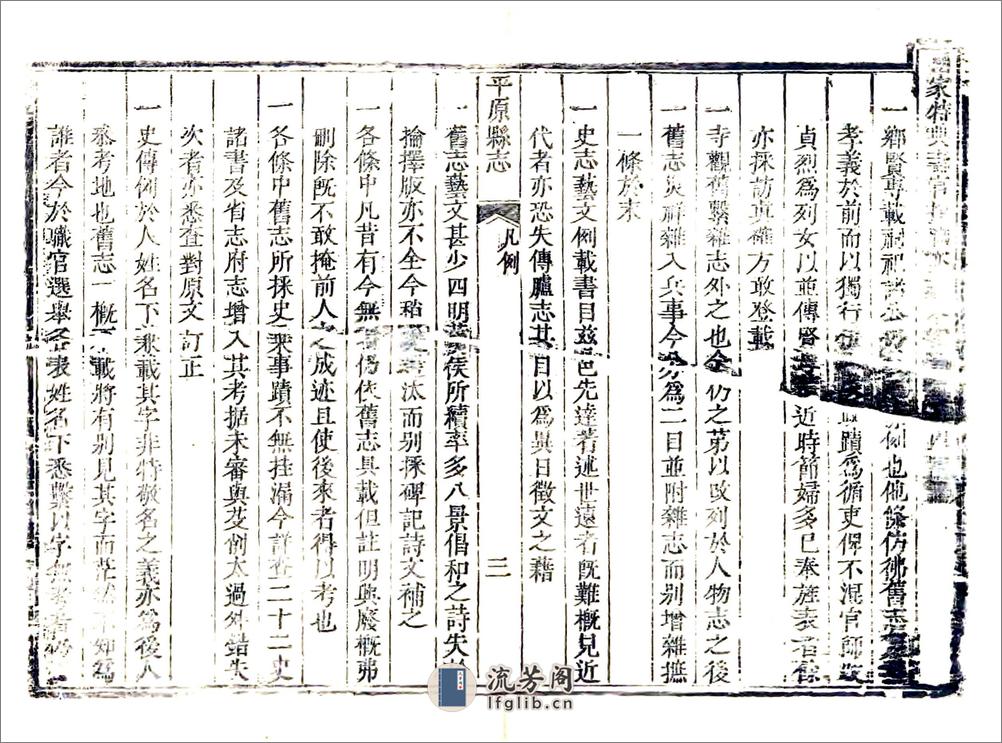 家特典
一鄉賢專載祠祀諸公例也他條仿彿舊志
孝義於前而以獨行蹟爲循吏俾不混官師故
貞烈爲列女以並傳賢近時節婦多已奉旌表者餘
亦採訪眞確方敢登載
一寺觀舊繫雜志外之也今仍之第以改列於人物志之後
舊志災祥雜入兵事今分爲二目並附雜志而别增雜摭
一條於末
一史志藝文例載書目玆邑先達著述世遠者旣難概見近
代者亦恐失傳臚志其目以爲異日徵文之藉
平原縣志
凡例
三
一舊志藝文甚少四明黃侯所續率多八景倡和之詩失於
掄擇版亦不全今稍汰而别採碑記詩文補之
一各條中凡昔有今無者仍依舊志具載但註明興廢概弗
刪除旣不敢掩前人之成迹且使後來者得以考也
一各條中舊志所採史乘事蹟不無挂漏今詳查二十二史
諸書及省志府志增入其考据未審與芟創太過外錯失
次者亦悉查對原文訂正
一史傳例於人姓名下兼載其字非特敬名之義亦爲後人
叅考地也舊志一概不載將有别見其字而茫然不知爲
誰者今於職官選舉各表姓名下悉繫以字無考者仍
流芳阁
lfglib.cn